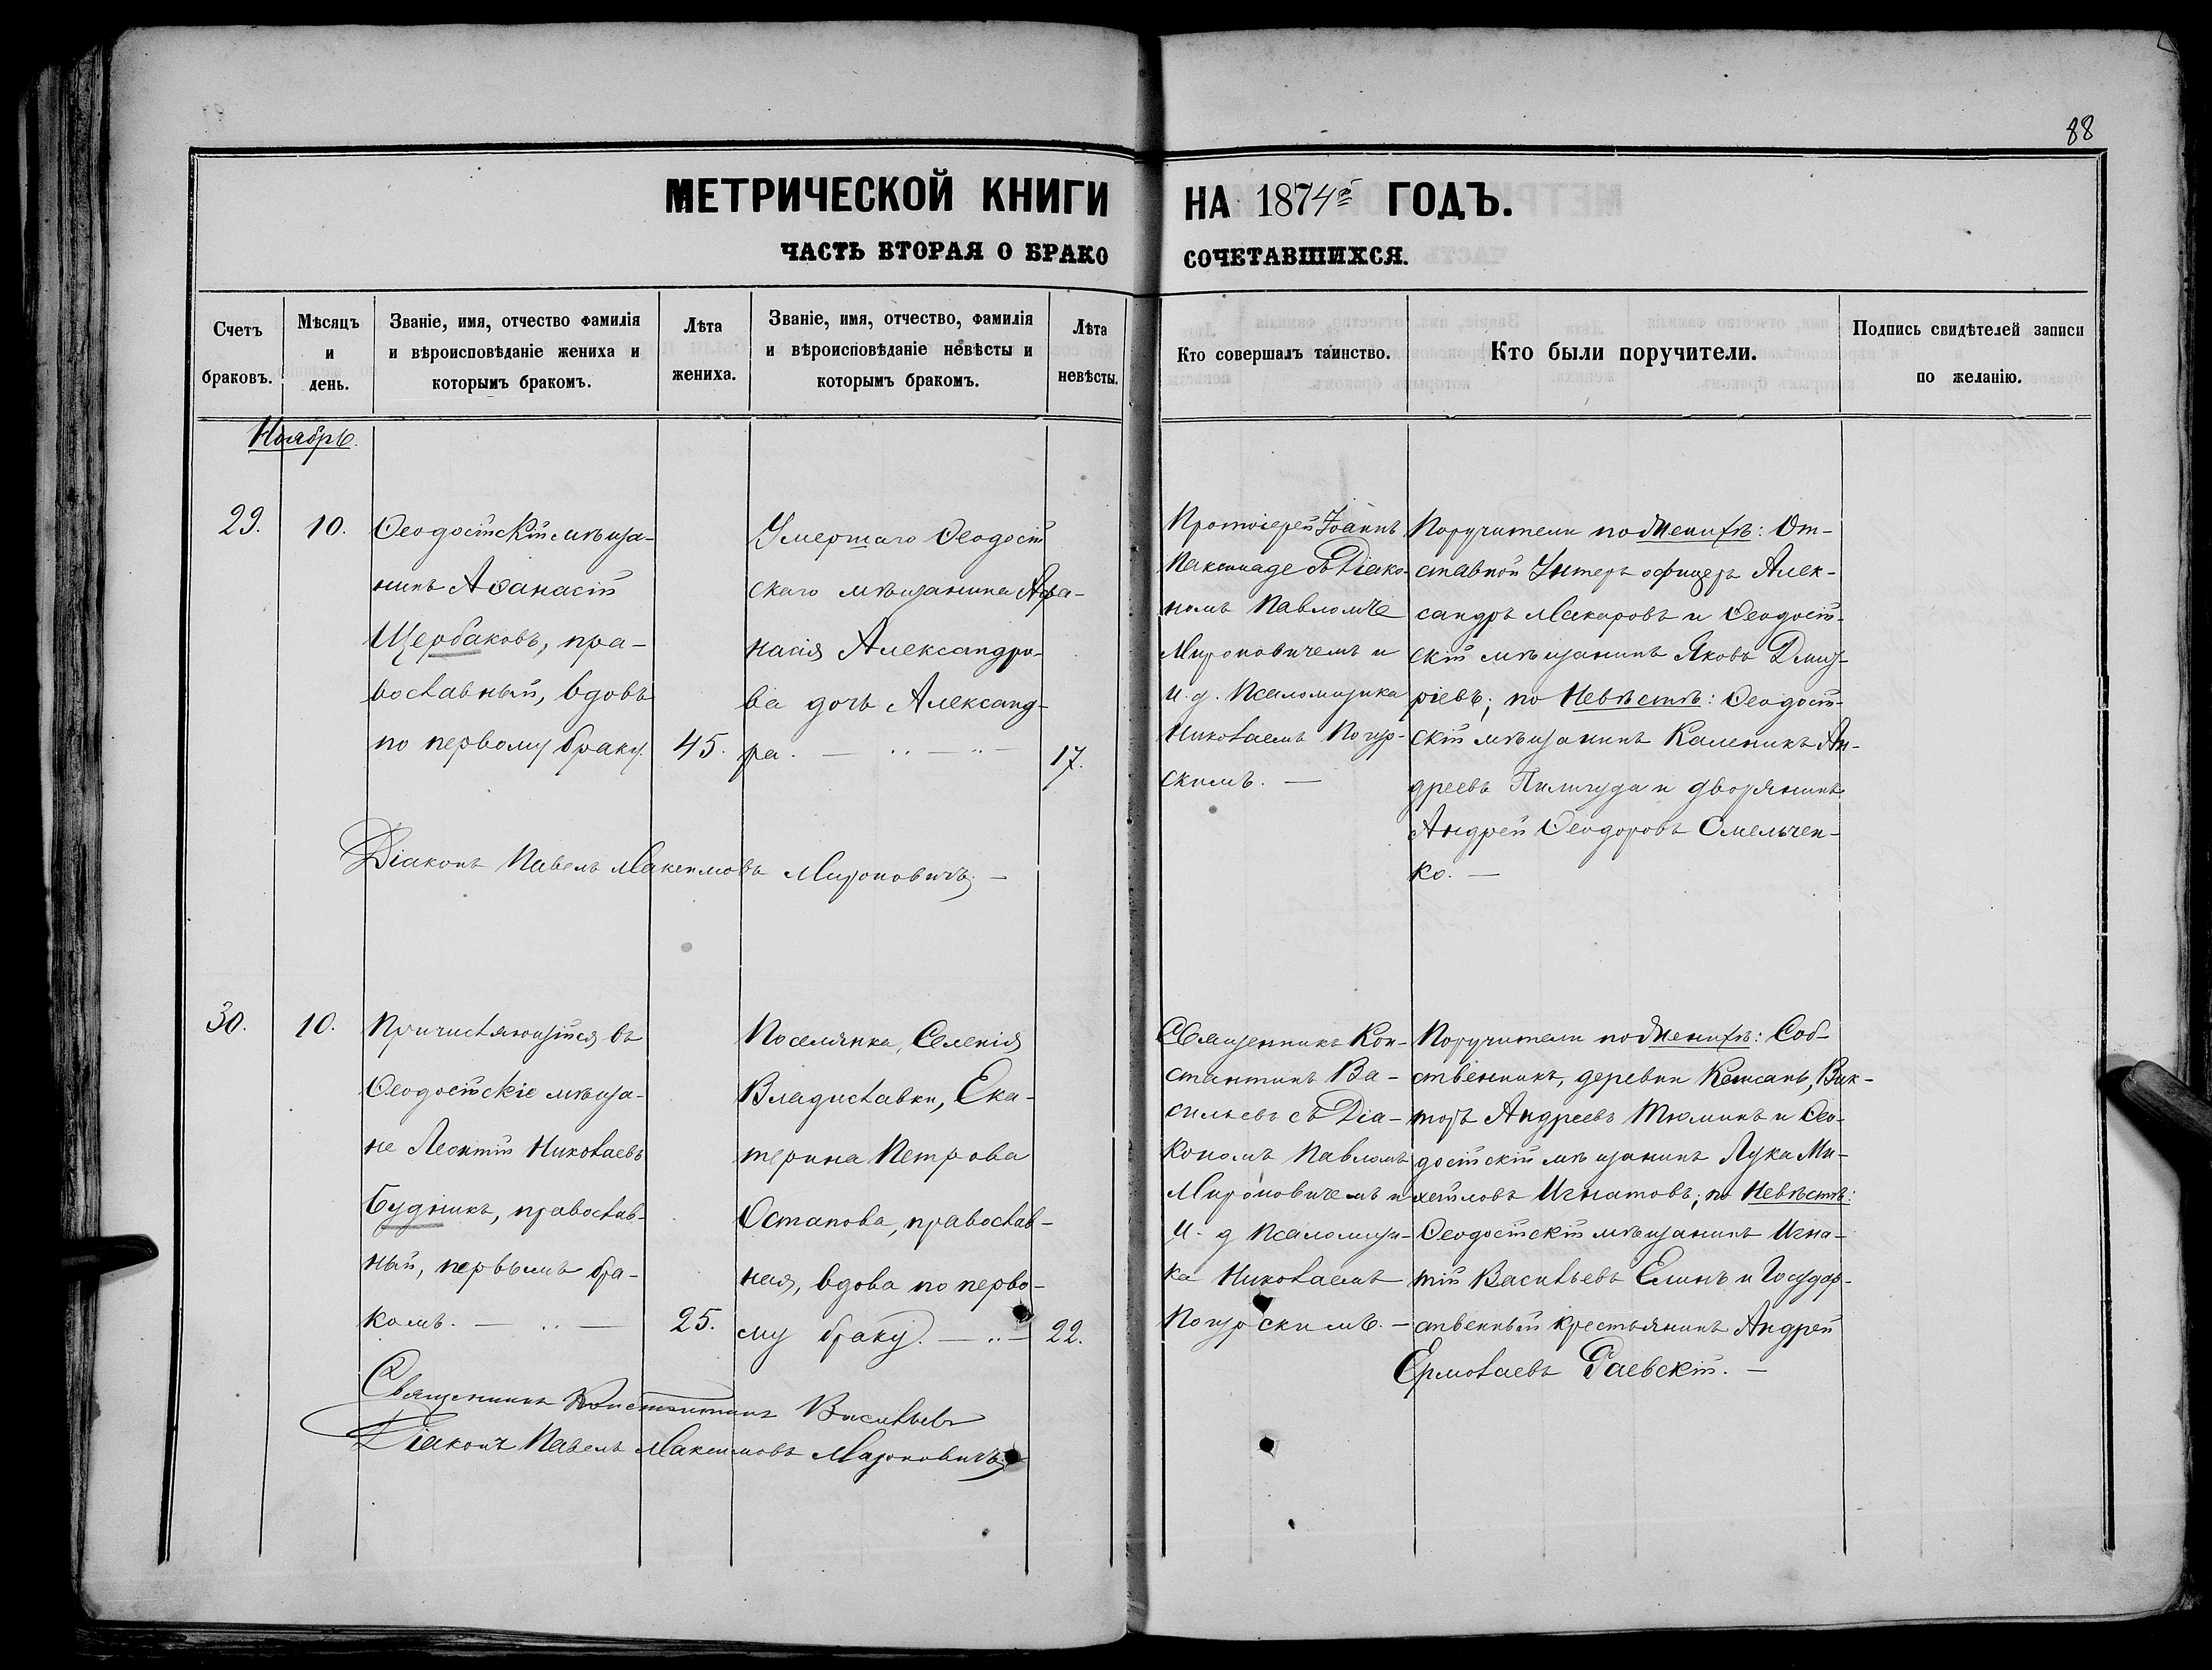 88
МЕТРИЧЕСКОЙ КНИГИ НА 1874й ГОДЪ.
ЧАСТЬ ВТОРАЯ О БРАКО СОЧЕТАВШИХСЯ.
Счетъ браковъ.
Мѣсяцъ и день.
Званіе, имя, отчество фамилія
и вѣроисповѣданіе жениха и
которымъ бракомъ.
Лѣта жениха.
Званіе, имя, отчество, фамилія
и вѣроисповѣданіе невѣсты и
которымъ бракомъ.
Лѣта невѣсты.
Кто совершалъ таинство.
Кто были поручители.
Подпись свидѣтелей записи
по желанію.
Ноябрь.
29.
10.
Ѳеодосійскій мѣща-
нинъ Аѳанасій
Щербаковъ, пра-
вославный, вдовъ
по первому браку.
45.
Умершаго Ѳеодосій
скаго мѣщанина Аѳа-
насія Александро-
ва дочь Александ-
ра.
17.
Протоіерей Іоаннъ
съ Діако-
номъ Павломъ
Мироновичемъ и
и. д. Псаломщика
Николаемъ
скимъ.
Поручители по Женихѣ: От-
ставной Унтеръ офицеръ Алек-
сандръ Макаровъ и Ѳеодосій-
скій мѣщанинъ Яковъ Дмит-
ріевъ; по Невѣстѣ: Ѳеодосій-
скій мѣщанинъ Каленикъ Ан-
дреевъ и дворянинъ
Андрей Ѳеодоровъ Омельчен-
ко.
Діаконъ Павелъ Максимовъ Мироновичъ.
30.
10.
Причисляющійся въ
Ѳеодосійскіе мѣща-
не Леонтій Николаевъ
Будникъ, православ-
ный, первымъ бра-
комъ.
25.
Поселянка, Селенія
Владиславки, Ека-
терина Петрова
Остапова, православ-
ная, вдова по перво-
му браку.
22.
Священникъ Кон-
стантинъ Ва-
сильевъ съ Діа-
кономъ Павломъ
Мироновичемъ и
и. д Псаломщи-
ка Николаемъ
Поручители по Женихѣ: Соб-
ственникъ, деревни Кенсанъ, Вик-
торъ Андреевъ Тюминъ и Ѳео-
досійскій мѣщанинъ Лука Ми-
хайловъ Игнатовъ; по Невѣстѣ:
Ѳеодосійскій мѣщанинъ Игна-
тій Васильевъ Елинъ и Государ-
ственный крестьянинъ Андрей
Ермолаевъ Раевскій.
Священникъ Константинъ Васильевъ
Діаконъ Павелъ Максимовъ Мироновичъ